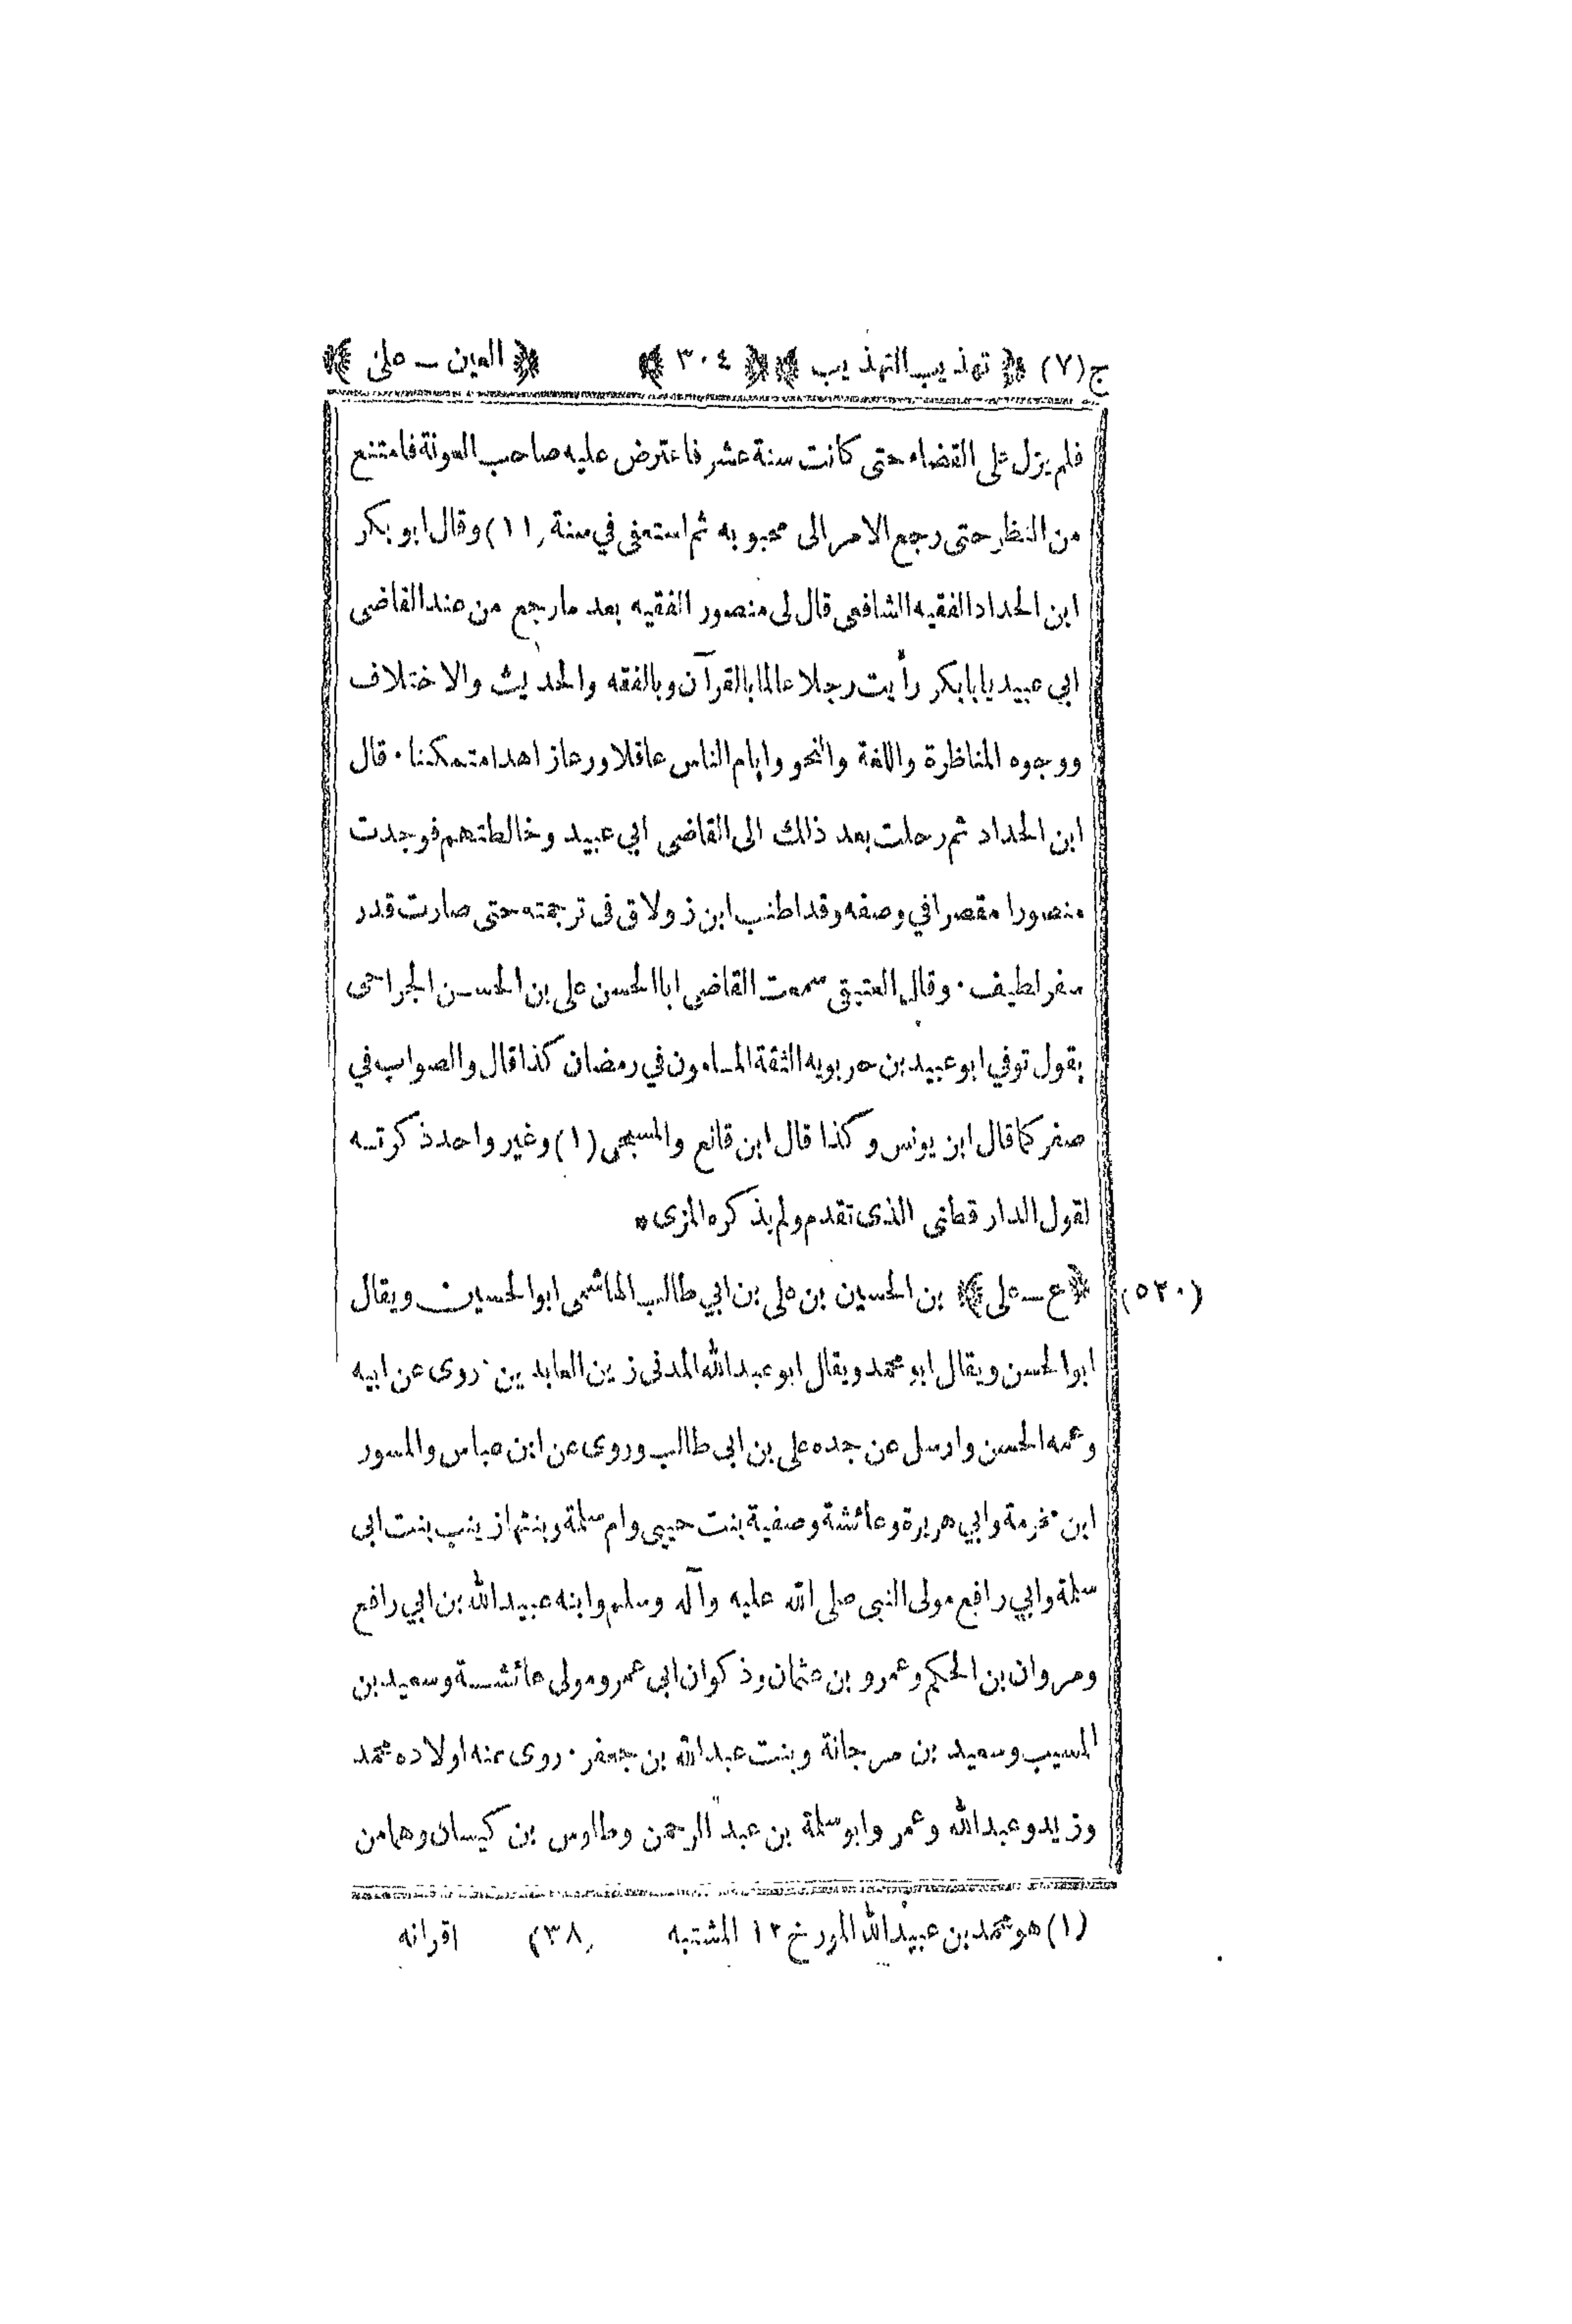 ج(٧) ﴿ تهذيب التهذيب ﴾ ﴿ ٣٠٤ ﴾ ﴿ العين ــ على ﴾
فلم يزل على القضاء حتى كانت سنة عشر فاعترض عليه صاحب المونة فامتنع
من النظر حتى رجع الامر الى محبوبه ثم استعفى في سنة (١١) وقال ابو بكر
ابن الحداد الفقيه الشافعى قال لى منصور الفقيه بعد مارجع من عند القاضى
ابي عبيد يابابكر رأيت رجلا عالما بالقرآن وبالفقه والحديث والاختلاف
ووجوه المناظرة واللغة والنحو وايام الناس عاقلا ورعا زاهدا متمكنا ٠ قال
ابن الحداد ثم رحلت بعد ذلك الى القاضى ابي عبيد وخالطتهم فوجدت
منصورا مقصرا في وصفه وقد اطنب ابن زولاق فى ترجمته حتى صارت قدر
سفر لطيف ٠ وقال العتيقى سمعت القاضى ابا الحسن على بن الحسن الجراحى
يقول توفي ابو عبيد بن حربويه الثقة المامون في رمضان كذا قال والصواب في
صفر كما قال ابن يونس وكذا قال ابن قانع والمسبحى (١) وغير واحد ذكرته
لقول الدار قطنى الذى تقدم ولم يذكره المزى *
(٥٢٠) ﴿ ع ــ على ﴾ بن الحسين بن على بن ابي طالب الهاشمى ابو الحسين ويقال
ابو الحسن ويقال ابو محمد ويقال ابو عبد الله المدنى زين العابدين ٠ روى عن ابيه
وعمه الحسن وارسل عن جده على بن ابى طالب وروى عن ابن عباس والمسور
ابن مخرمة وابي هريرة وعائشة وصفية بنت حيى وام سلمة وبنتها زينب بنت ابى
سلمة وابي رافع مولى النبى صلى الله عليه وآله وسلم وابنه عبيد الله بن ابي رافع
ومروان بن الحكم وعمرو بن عثمان وذكوان ابى عمرو مولى عائشة وسعيد بن
المسيب وسعيد بن مرجانة وبنت عبد الله بن جعفر ٠ روى عنه اولاده محمد
وزيد وعبد الله وعمر وابو سلمة بن عبد الرحمن وطاوس بن كيسان وهما من
(١) هو محمد بن عبيد الله المورخ ١٢ المشتبه (٣٨) اقرانه